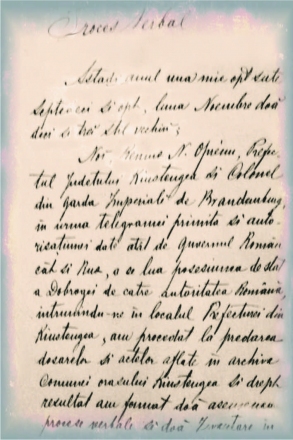 Proces Verbal
Astadi anul una mie opt sute
septe deci si opt, luna Noembre doă
deci si trei stil vechiu;
Noi, Remus N. Opreanu, Prefec
tul Judetului Kiustengea si Colonel
din garda Imperială de Brandenburg,
in urma telegramei primita si auto
risatiunei date atât de Guvernul Român
cât si Rus, a se lua posesiunea de stat
a Dobrogei de catre autoritatea Română,
intrunindu-ne in localul Prefecturei din
Kiustengea, am procedat la predarea
dosarelor si actelor aflate in archiva
Comunei orasului Kiustengea si drept
resultat am format doă asemenea
procese verbale si doă Inventare in